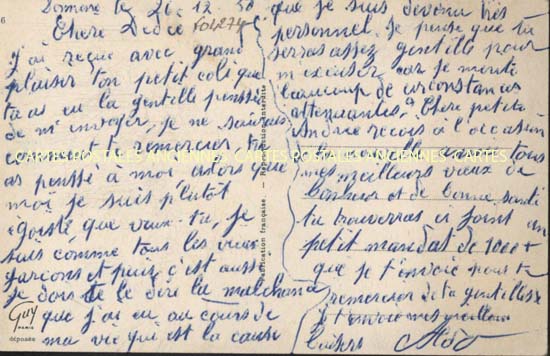 Dormans le 26-12-58
Chère Dédée
J'ai reçue avec grand
plaisir ton petit colis que
tu as eu la gentille pensée
de m'envoyer, je ne saurais
comment te remercier, tu
as penssé à moi, alors que
moi je suis plutôt
égoïste, que veux-tu, je
suis comme tous les vieux
garçons et puis c'est aussi
je dois te le dire la malchance
que j'ai eu au cours de
ma vie qui est la cause
que je suis devenu très
personnel. Je pense que tu
serras assez gentille pour
m'excuser, car je mérite
beaucoup de circonstances
attenuantes. Chère petite
Andrée reçois à l'occasion
tous
mes meilleurs vœux de
bonheur et de bonne santé
tu trouverras ci joint un
petit mandat de 1000 f
que je t'envoie pour te
remercier de ta gentillesse
et t'envoie mes meilleurs
baisers
CARTES POSTALES ANCIENNES CARTES POSTALES ANCIENNES CARTES
Fabrication française. — Reproduction interdite
Guy
PARIS
déposée
6